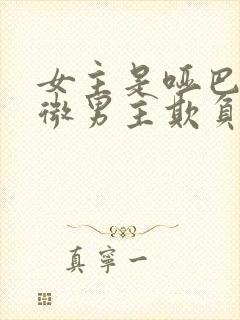 女主是哑巴
微男主欺负
真宁一